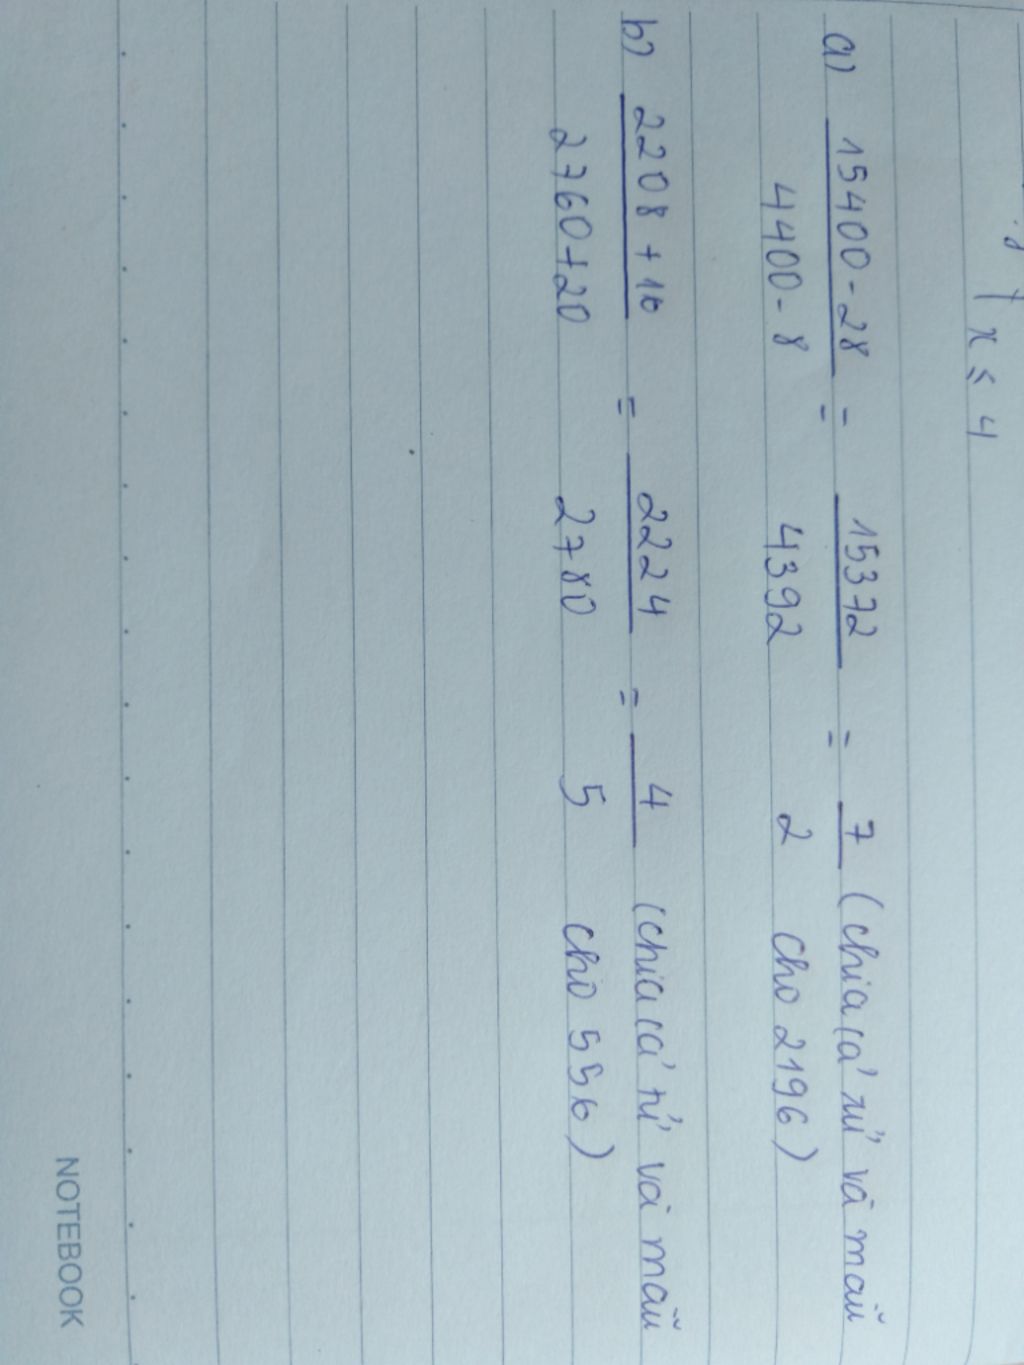 x ≤ 4
a) 15400 - 28 = 15372 = 7 (chia cả tử và mẫu
4400 - 8 4392 2 cho 2196)
b) 2208 + 16 = 2224 = 4 (chia cả tử và mẫu
2760 + 20 2780 5 cho 556)
NOTEBOOK